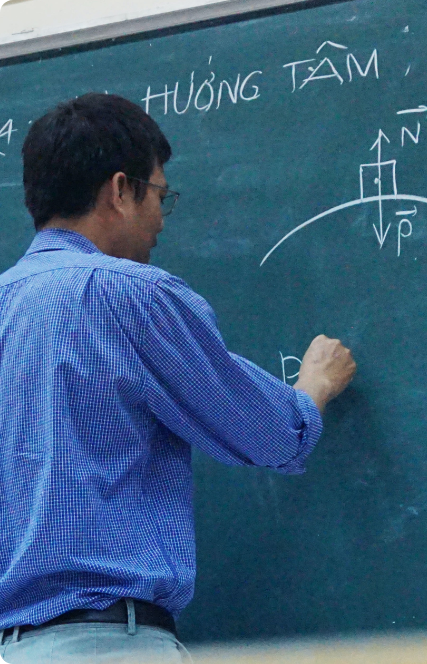 HƯỚNG TÂM
N
P
P